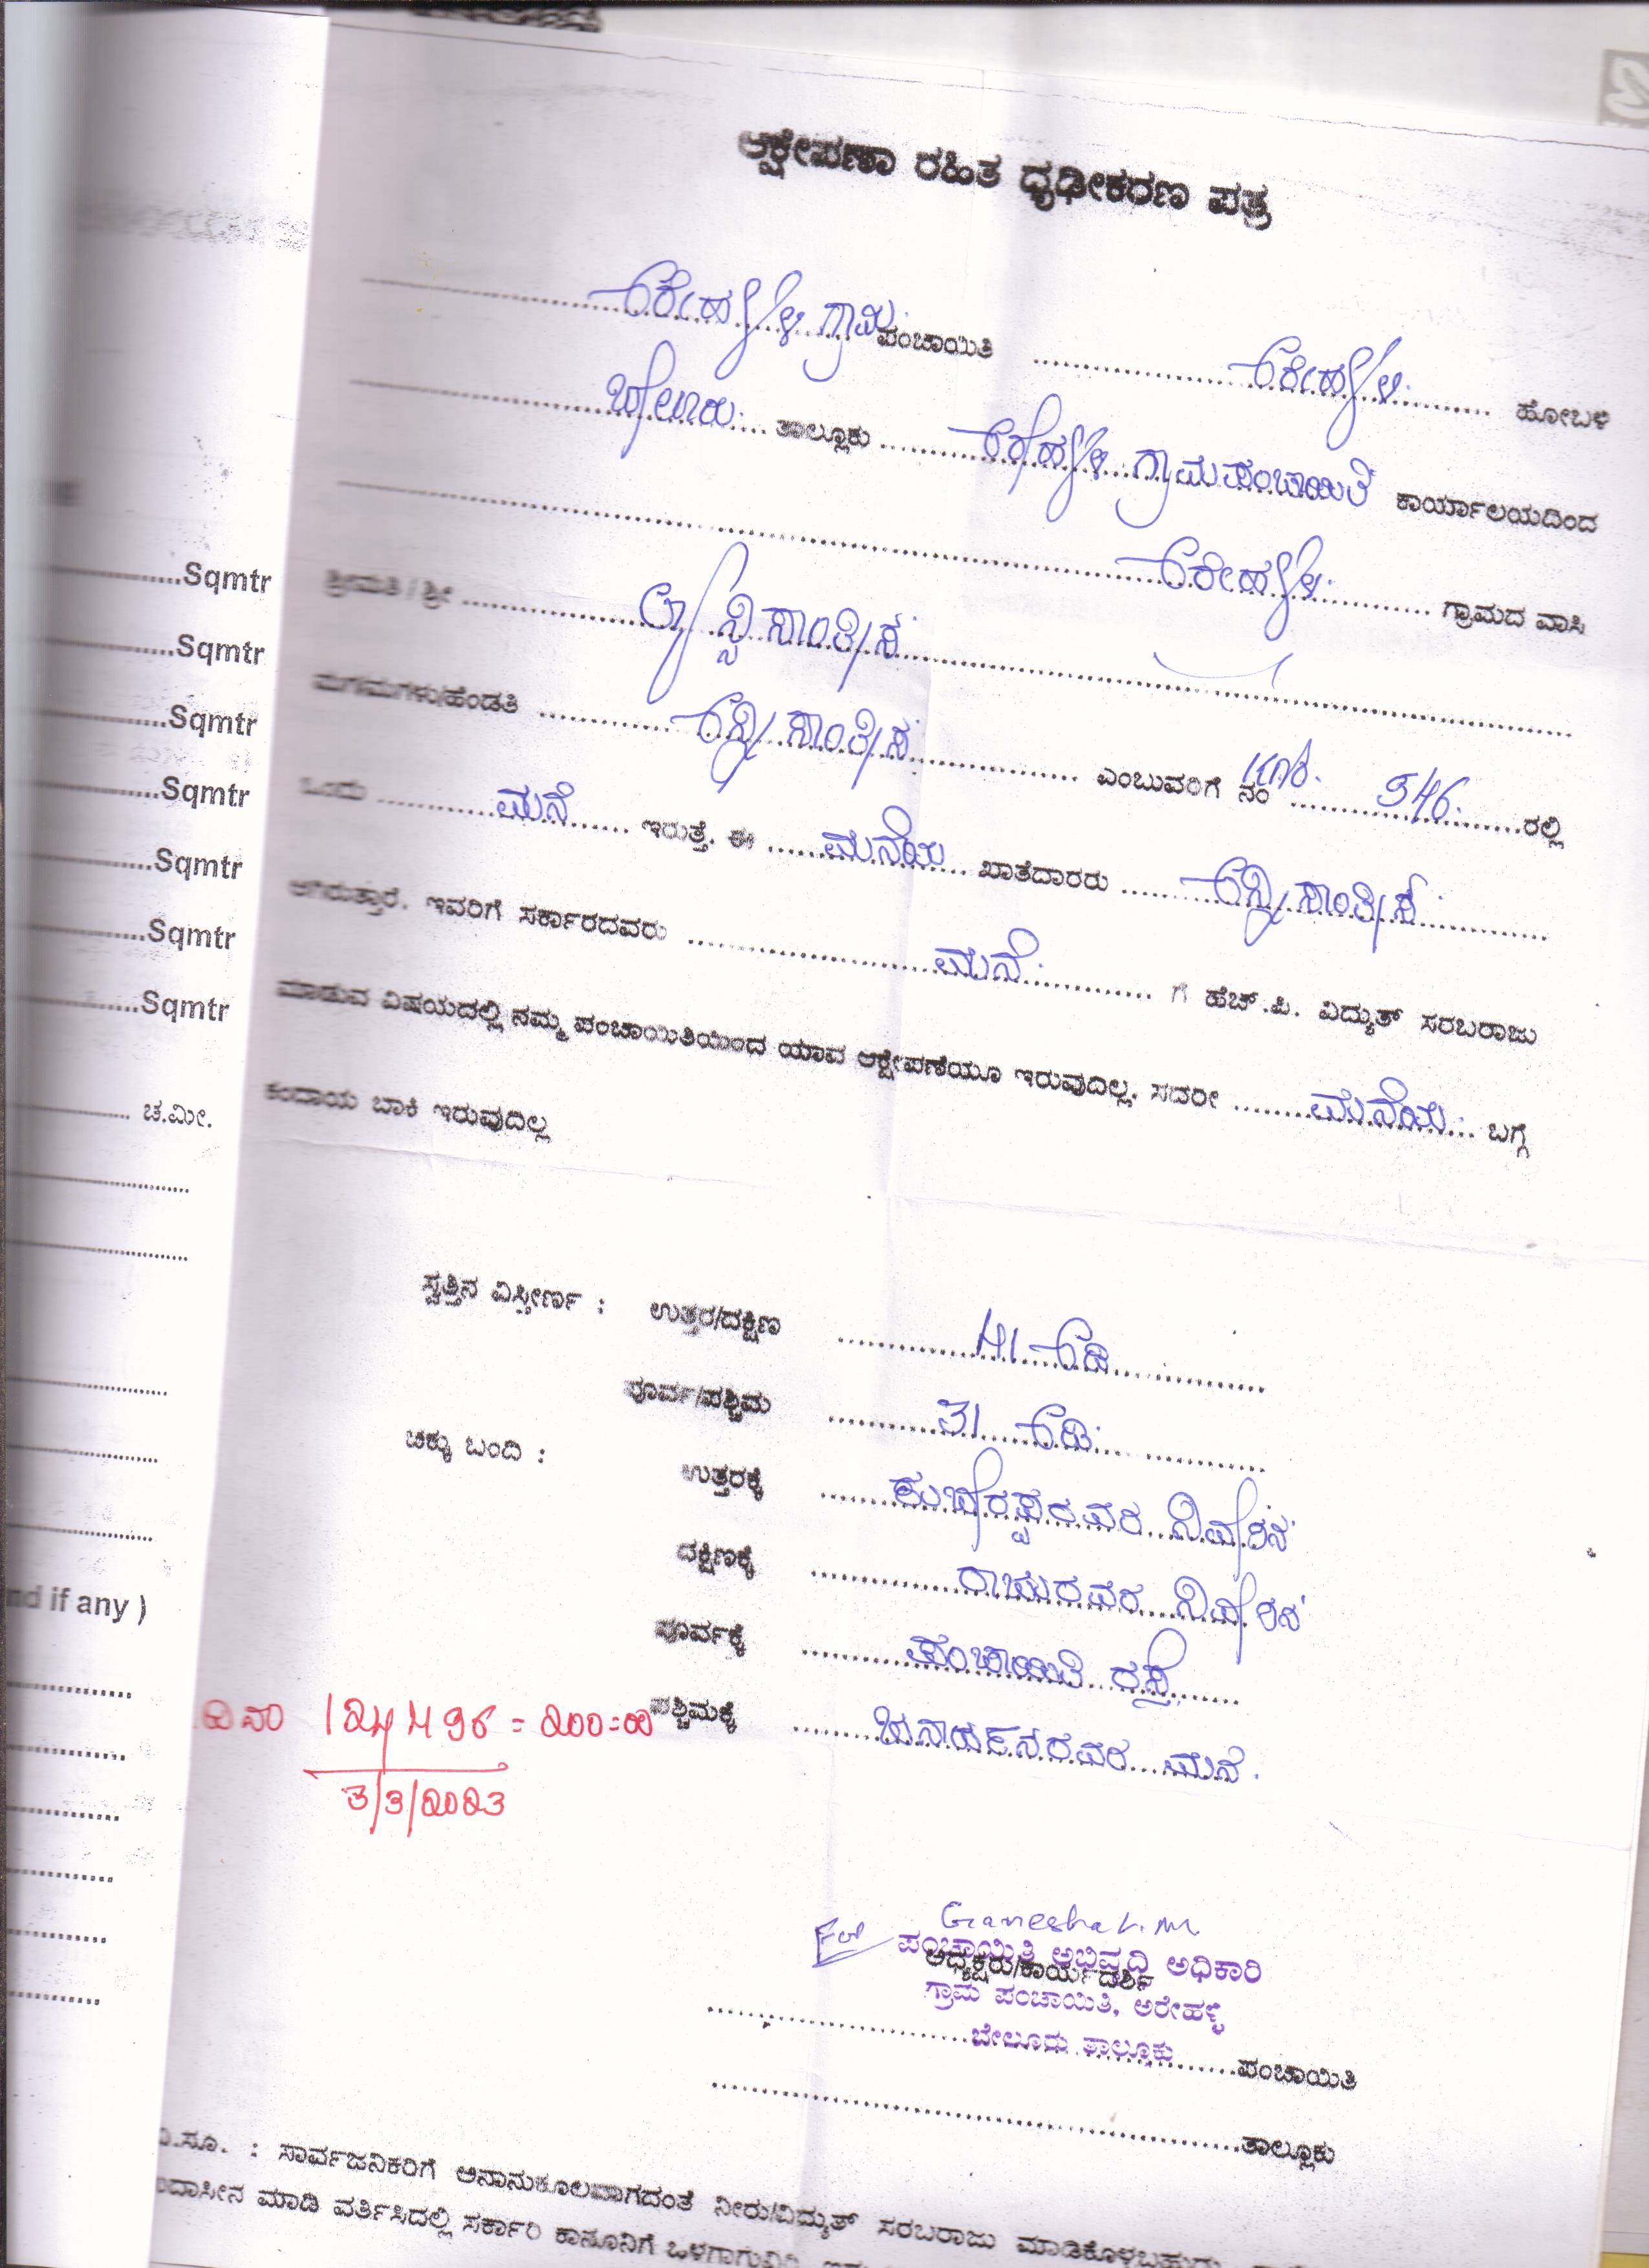 ಆಕ್ಷೇಪಣಾ ರಹಿತ ಧೃಢೀಕರಣ ಪತ್ರ
ಅರೇಹಳ್ಳಿ ಗ್ರಾಮ ಪಂಚಾಯಿತಿ ಅರೇಹಳ್ಳಿ ಹೋಬಳಿ
ಬೇಲೂರು ತಾಲ್ಲೂಕು ಅರೇಹಳ್ಳಿ ಗ್ರಾಮಪಂಚಾಯಿತಿ ಕಾರ್ಯಾಲಯದಿಂದ
ಅರೇಹಳ್ಳಿ ಗ್ರಾಮದ ವಾಸಿ
ಶ್ರೀಮತಿ / ಶ್ರೀ
ಮಗ/ಮಗಳು/ಹೆಂಡತಿ ಎಂಬುವರಿಗೆ ನಂ 546 ರಲ್ಲಿ
ಒಂದು ಮನೆ ಇರುತ್ತೆ. ಈ ಮನೆಯ ಖಾತೆದಾರರು
ಆಗಿರುತ್ತಾರೆ. ಇವರಿಗೆ ಸರ್ಕಾರದವರು ಮನೆ ಗೆ ಹೆಚ್.ಪಿ. ವಿದ್ಯುತ್ ಸರಬರಾಜು
ಮಾಡುವ ವಿಷಯದಲ್ಲಿ ನಮ್ಮ ಪಂಚಾಯಿತಿಯಿಂದ ಯಾವ ಆಕ್ಷೇಪಣೆಯೂ ಇರುವುದಿಲ್ಲ. ಸದರೀ ಮನೆಯ ಬಗ್ಗೆ
ಕಂದಾಯ ಬಾಕಿ ಇರುವುದಿಲ್ಲ
ಸ್ವತ್ತಿನ ವಿಸ್ತೀರ್ಣ : ಉತ್ತರ/ದಕ್ಷಿಣ 41 ಅಡಿ
ಪೂರ್ವ/ಪಶ್ಚಿಮ 31 ಅಡಿ
ಚಕ್ಕು ಬಂದಿ :
ಉತ್ತರಕ್ಕೆ ನಿವೇಶನ
ದಕ್ಷಿಣಕ್ಕೆ ರಾಜುರವರ ನಿವೇಶನ
ಪೂರ್ವಕ್ಕೆ ಪಂಚಾಯಿತಿ ರಸ್ತೆ
ಪಶ್ಚಿಮಕ್ಕೆ ಜನಾರ್ಧನರವರ ಮನೆ.
124496 = 200=00
3/3/2023
For Ganesha L.M
ಪಂಚಾಯಿತಿ ಅಭಿವೃದ್ಧಿ ಅಧಿಕಾರಿ
ಅಧ್ಯಕ್ಷರು/ಕಾರ್ಯದರ್ಶಿ
ಗ್ರಾಮ ಪಂಚಾಯಿತಿ, ಅರೇಹಳ್ಳಿ
ಬೇಲೂರು ತಾಲ್ಲೂಕು
ಪಂಚಾಯಿತಿ
ತಾಲ್ಲೂಕು
ವಿ.ಸೂ. : ಸಾರ್ವಜನಿಕರಿಗೆ ಅನಾನುಕೂಲವಾಗದಂತೆ ನೀರು/ವಿದ್ಯುತ್ ಸರಬರಾಜು ಮಾಡಿಕೊಳ್ಳಬಹುದು
ಉದಾಸೀನ ಮಾಡಿ ವರ್ತಿಸಿದಲ್ಲಿ ಸರ್ಕಾರಿ ಕಾನೂನಿಗೆ
Sqmtr
Sqmtr
Sqmtr
Sqmtr
Sqmtr
Sqmtr
Sqmtr
ಚ.ಮೀ.
nd if any )